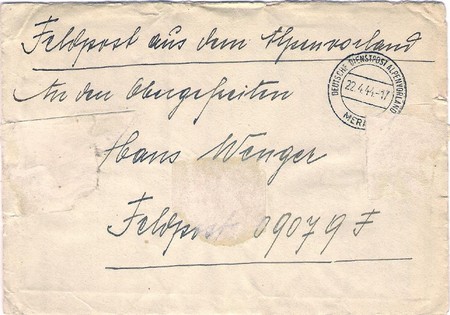 Feldpost aus dem Alpenvorland
DEUTSCHE DIENSTPOST ALPENVORLAND
22.4.44.-17
MER
An den Obergefreiten
Hans Wenger
Feldpost 09079 F